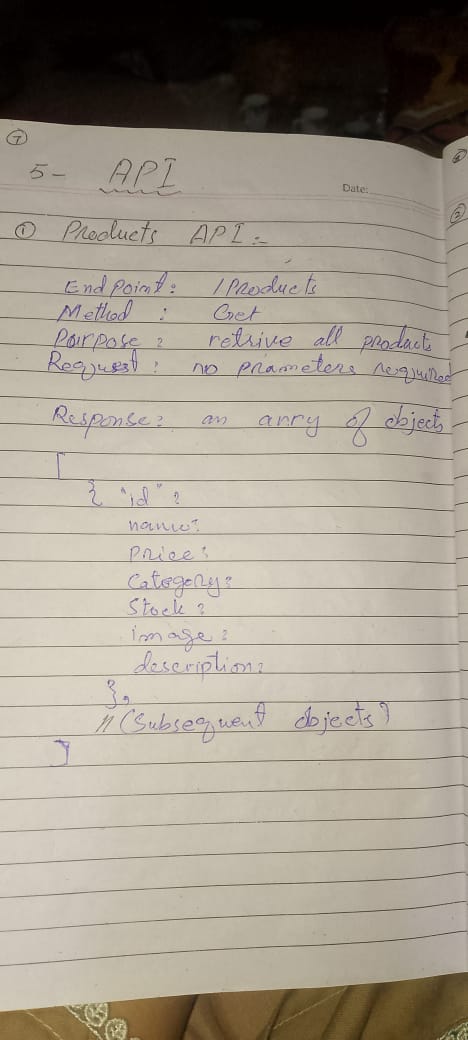 7
5- API
Date:
① Products API :-
End point : / Products
Method : Get
Pairpose : retrive all products
Request : no prameters required
Response : an arry of objects
[
{ "id" :
name :
price :
Category :
Stock :
image :
description :
},
// (Subsequent objects)
]
②